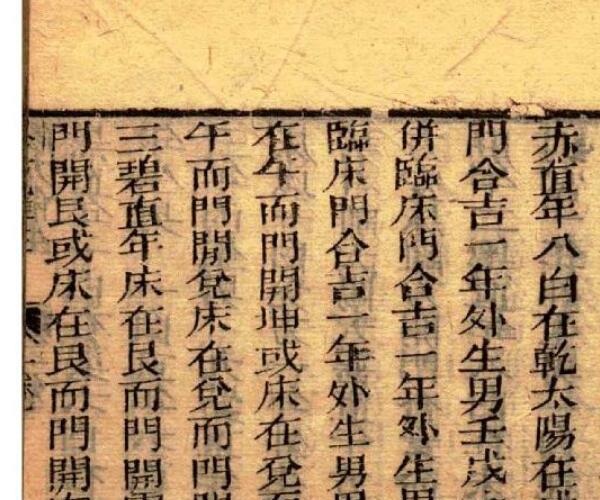 赤直年八白在乾太陽在
門合吉一年外生男壬戌
併臨床門合吉一年外生男
臨床門合吉一年外生男
在午而門開坤或床在兌而
午而門開兌床在兌而門開
三碧直年床在艮而門開
門開艮或床在艮而門開